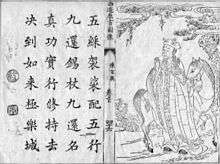 五蘇袈裟配五行
九還錫杖九還名
真功實行修持去
决到如來極樂城